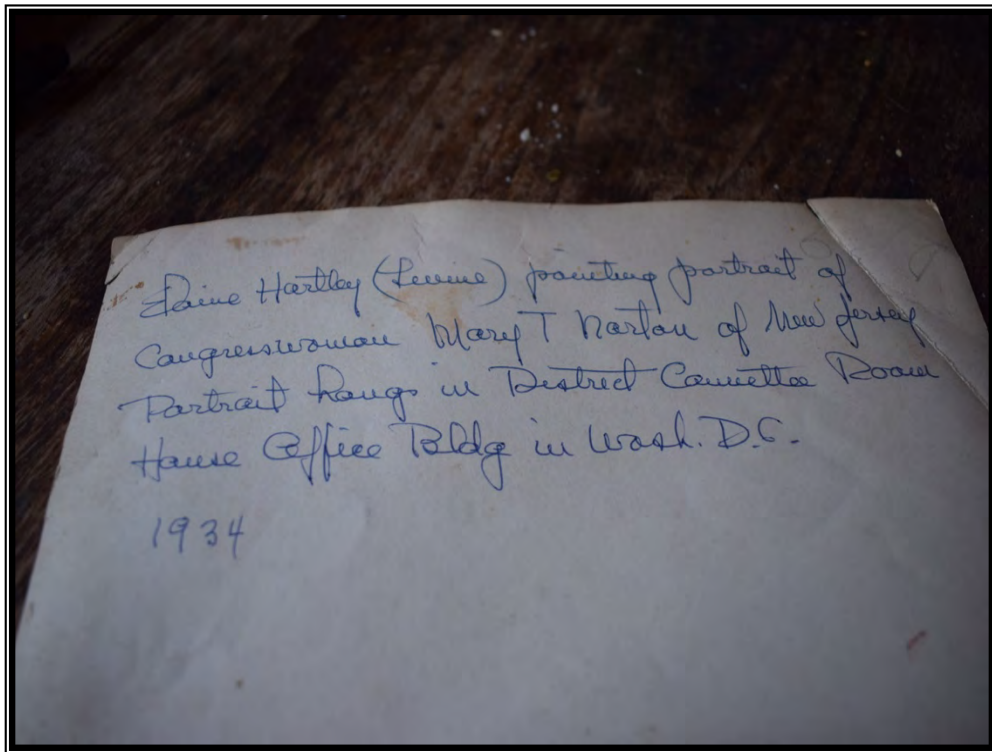 Elaine Hartley () painting portrait of
Congresswoman Mary T Norton of New Jersey
Portrait hangs in District Committee Room
House Office Bldg in Wash. D.C.
1934